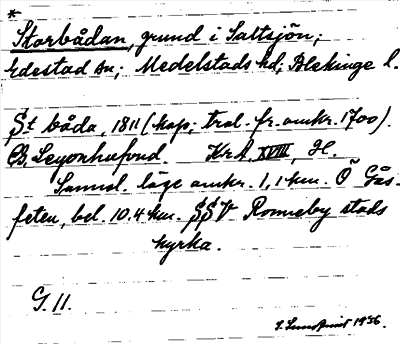 *
Storbådan, grund i Saltsjön;
Edestad sn; Medelstads hd; Blekinge l.
St båda, 1811 (kop; trol. fr. omkr. 1700).
CB. Leyonhufvud. KrA XVIII, H.
Sannol. läge omkr. 1,1 km. Ö Gås-
feten, bel. 10.4 km. SSV Ronneby stads
kyrka.
G. 11.
S. Lundqvist 1936.